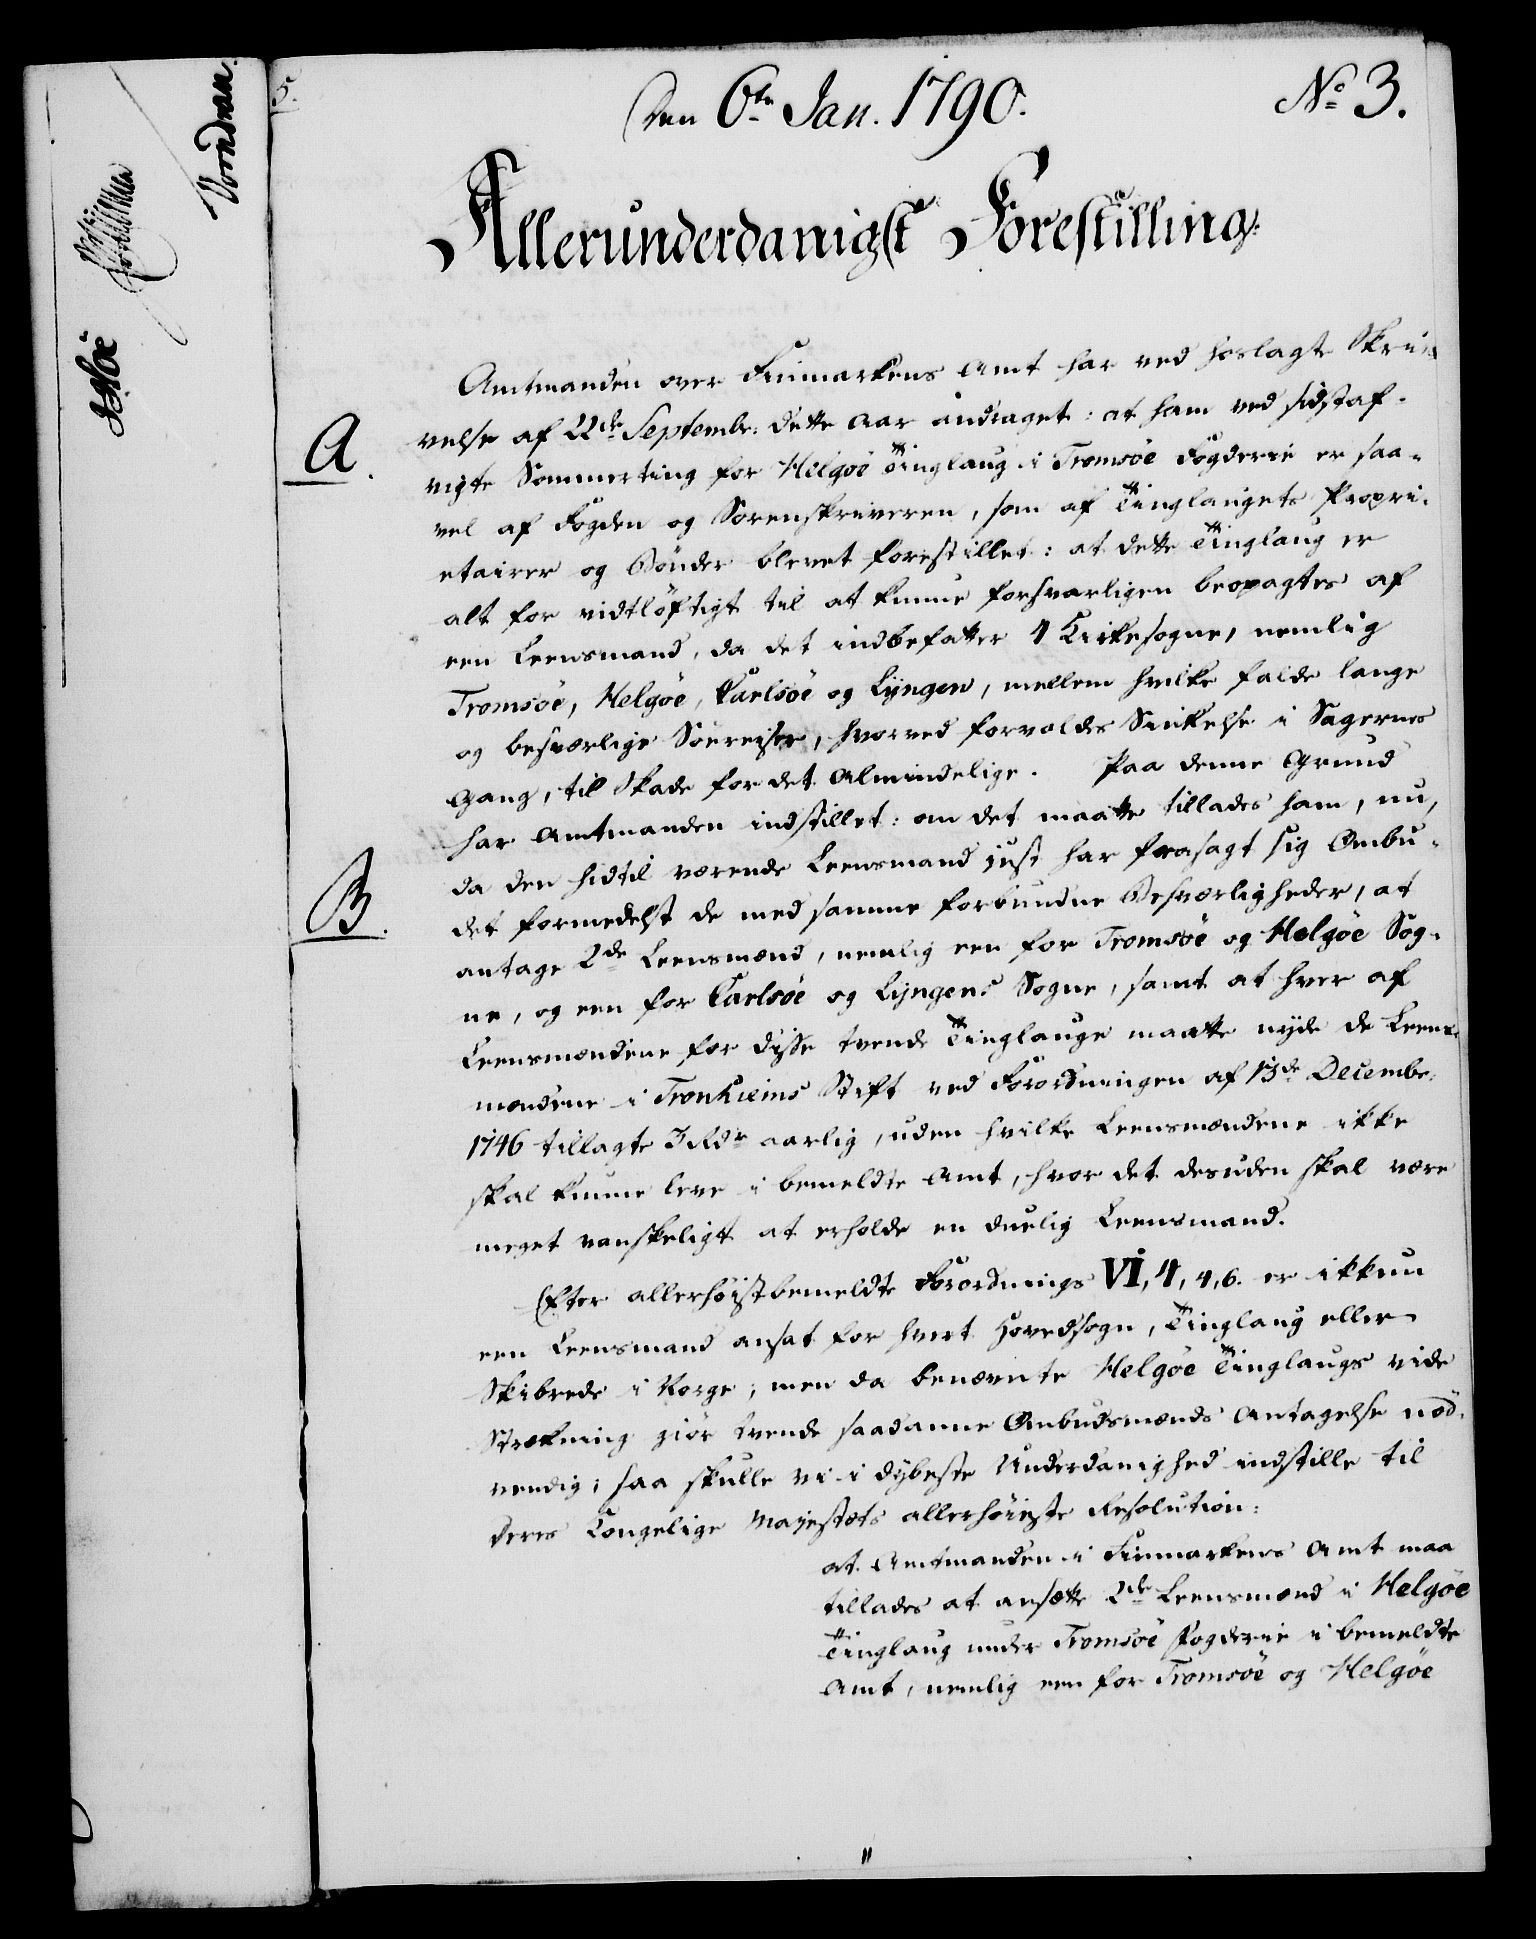 Den 6te Jan. 1790. No 3.
Allerunderdanigst Forestilling.
Amtmanden over Finmarkens Amt har ved hoslagte Skri-
A.
velse af 22de Septembr. dette Aar andraget: at ham ved sidstaf-
vigte Sommerting for Helgöe Tinglaug i Tromsöe Fogderie er saa-
vel af Fogden og Sorenskriveren, som af Tinglaugets Propri-
etairer og Bönder blevet forestillet: at dette Tinglaug er
alt for vidtlöftigt til at kunne forsvarligen beopagtes af
een Leensmand, da det indbefatter 4 Kirkesogne, nemlig
Tromsöe, Helgöe, Karlsöe og Lyngen, mellem hvilke falde lange
og besværlige Söereiser, hvorved forvoldes Sinkelse i Sagernes
Gang, til Skade for det Almindelige. Paa denne Grund
har Amtmanden indstillet: om det maatte tillades ham, nu,
B.
da den hidtil værende Leensmand just har frasagt sig Ombu-
det formedelst de med samme forbundne Besværligheder, at
antage 2de Leensmænd, nemlig een for Tromsöe og Helgöe Sog-
ne, og een for Carlsöe og Lyngens Sogne, samt at hver af
Leensmændene for disse tvende Tinglauge maatte nyde de Leens-
mændene i Tronhiems Stift ved Forordningen af 13de Decembr.
1746 tillagte 3 Rdr aarlig, uden hvilke Leensmændene ikke
skal kunne leve i bemeldte Amt, hvor det desuden skal være
meget vanskeligt at erholde en duelig Leensmand.
Efter allerhöistbemeldte Forordnings VI, 4, 4, 6. er ikkun
een Leensmand ansat for hvert Hovedsogn, Tinglaug eller
Skibrede i Norge; men da benævnte Helgöe Tinglaugs vide
Strækning giör tvende saadanne Ombudsmænds Antagelse nöd-
vendig; saa skulle vi i dybeste Underdanighed indstille til
Deres Kongelige Majestæts allerhöieste Resolution:
at Amtmanden i Finmarkens Amt maa
tillades at ansætte 2de Leensmænd i Helgöe
Tinglaug under Tromsöe Fogderie i bemeldte
Amt, nemlig een for Tromsöe og Helgöe